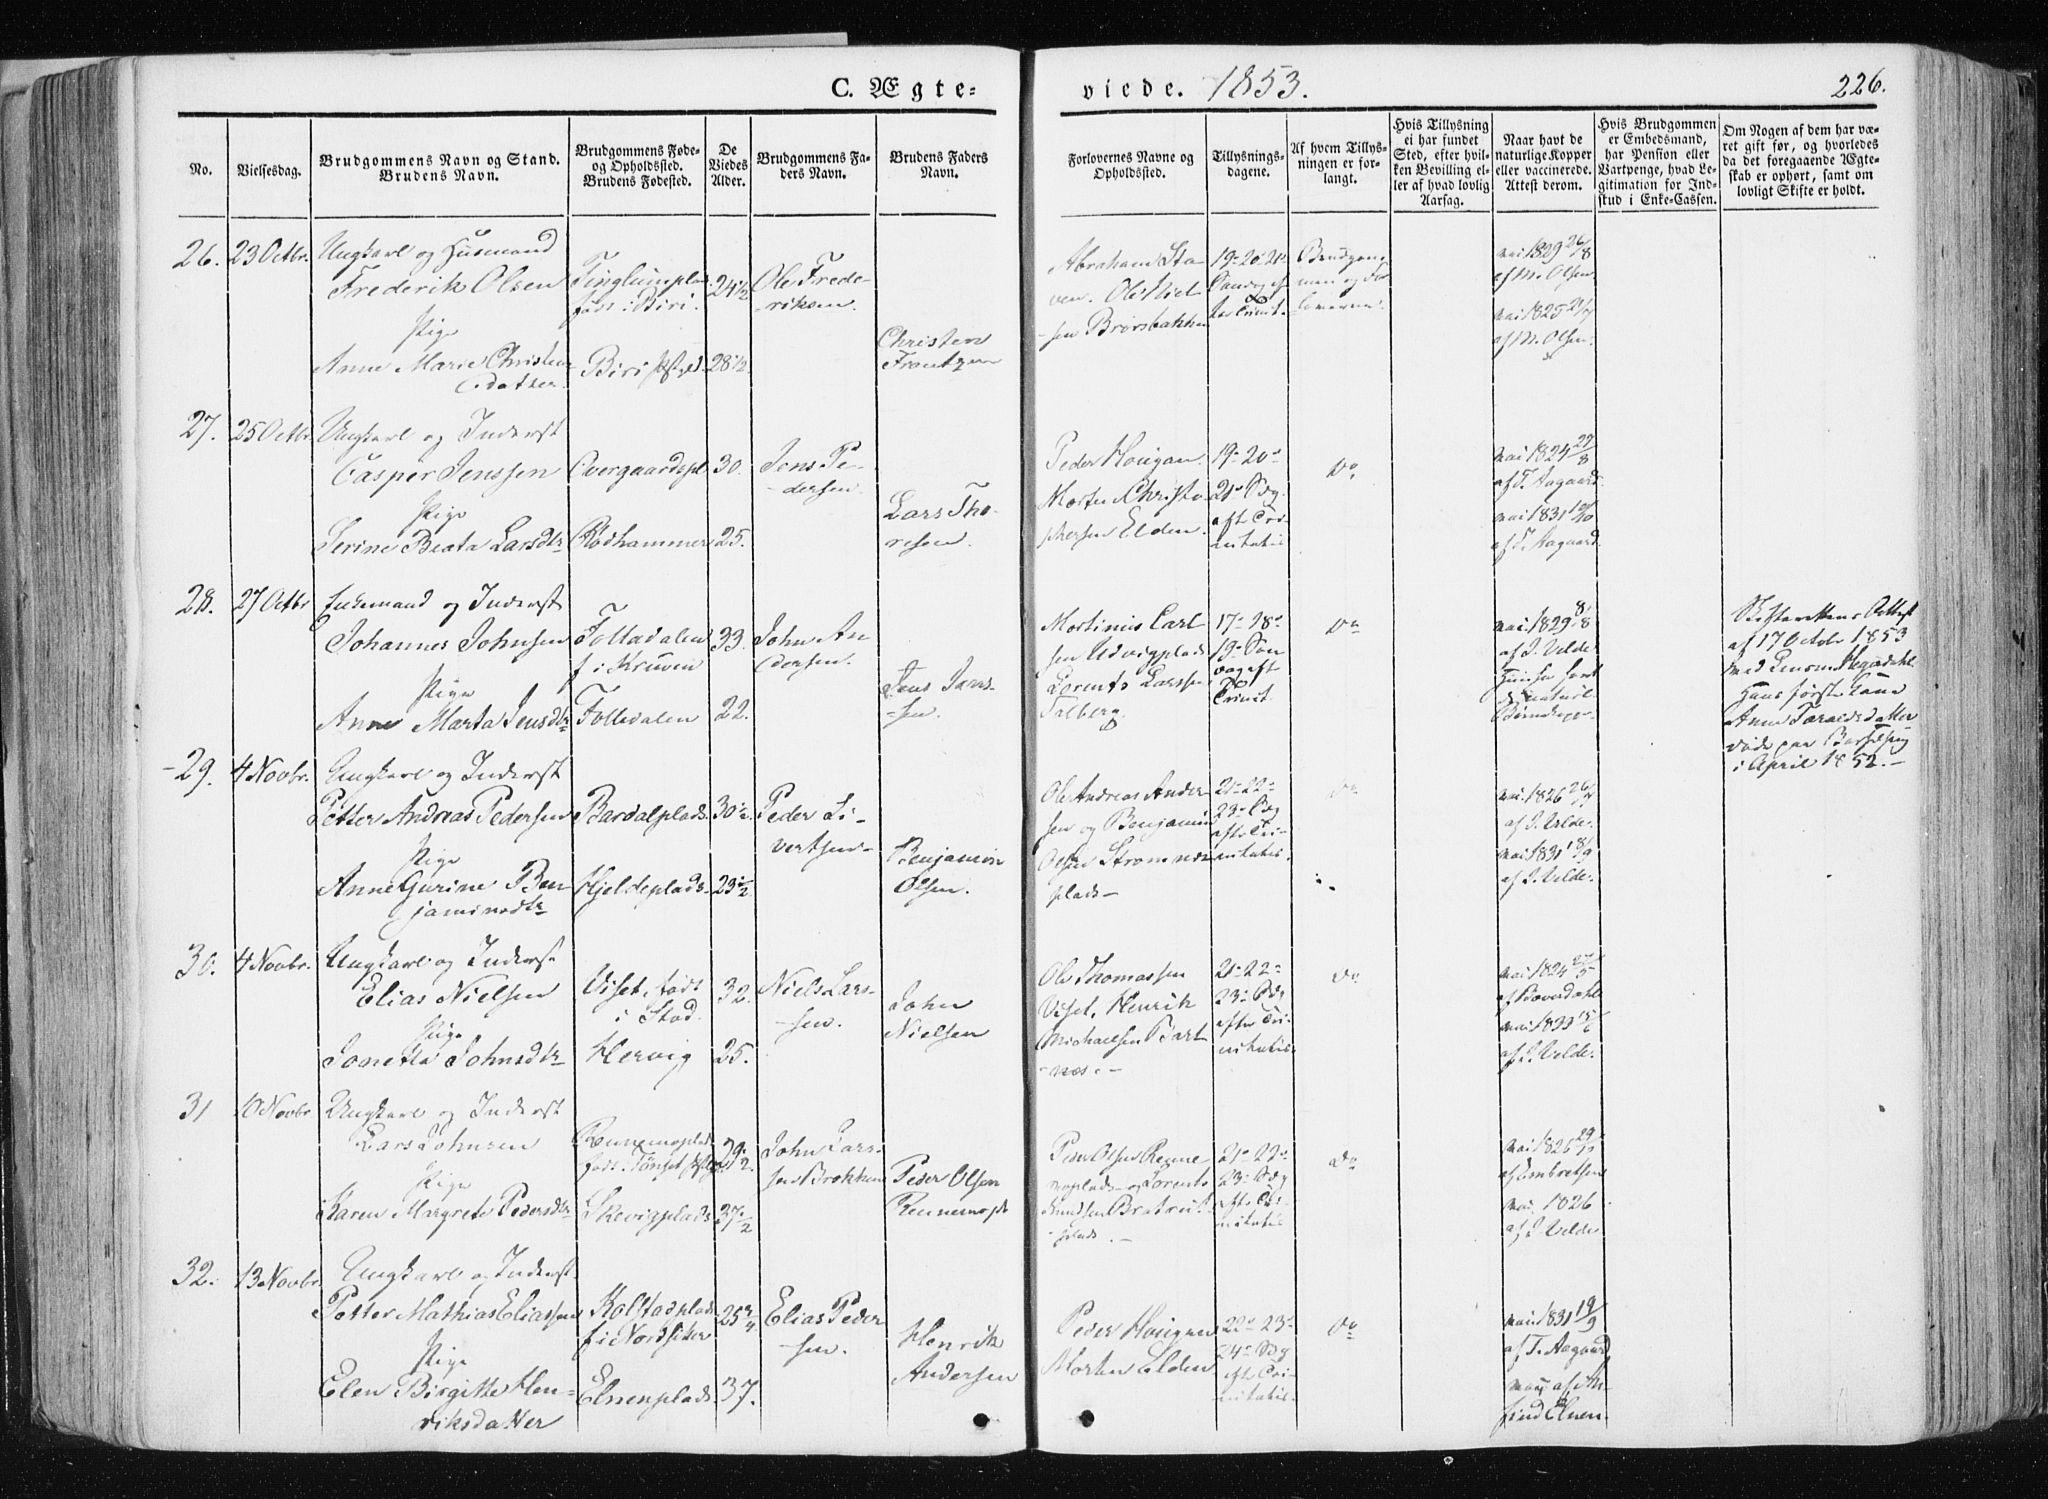 C. Ægte-
viede. 1853.
226.
No.
Vielsesdag.
Brudgommens Navn og Stand.
Brudens Navn.
Brudgommens Føde-
og Opholdssted.
Brudens Fødested.
De
Viedes
Alder.
Brudgommens Fa-
ders Navn.
Brudens Faders
Navn.
Forlovernes Navne og
Opholdssted.
Tillysnings-
dagene.
Af hvem Tillys-
ningen er for-
langt.
Hvis Tillysning
ei har fundet
Sted, efter hvil-
ken Bevilling el-
ler af hvad lovlig
Aarsag.
Naar havt de
naturlige Kopper
eller vaccinerede.
Attest derom.
Hvis Brudgommen
er Embedsmand,
har Pension eller
Vartpenge, hvad Le-
gitimation for Ind-
skud i Enke-Cassen.
Om Nogen af dem har væ-
ret gift før, og hvorledes
da det foregaaende Ægte-
skab er ophørt, samt om
lovligt Skifte er holdt.
26. 23 Octbr.
Ungkarl og Husmand
Frederik Olsen
Pige
Anne Marie Christens
datter
født i Biri.
Biri
24 1/2
28 1/2
Ole Frede-
riksen.
Christen
Frantzen
Abraham Sta-
ven. Ole Niel-
sen
19- 20- 21-
Brudgom-
men og For-
loverne.
vac. 1829 26/8
af M. Olsen
vac. 1825
af M. Olsen
27. 25 Octbr.
Ungkarl og Inderst
Casper Jenssen
Pige
Serine Beata Larsdtr
Overgaardspl.
Rødhammer
30.
25.
Jens Pe-
dersen.
Lars Tho-
resen.
Peder Hougan
Morten Christo
phersen Elden.
19- 20-
21- Sdg.
aft. Tri-
nitatis
Do
vac. 1824
af T. Aagaard
vac. 1831
af T. Aagaard.
28. 27 Octbr
Enkemand og Inderst
Johannes Johnsen
Pige
Anne Marta Jensdtr
Folladalen
Folledalen
33.
22.
John An
dersen.
Jens Lars-
sen.
Mortinus Carl
sen Udvigplads
Lorents Larssen
Talberg.
17- 18-
19- Søn
dag eft
Trinit
Do
vac. 1829 8/8
af J. Velde
Skifterettens Attest
af 17 Octbr 1853
Hans første Kone
Anne Taraldsdatter
døde paa Barselseng
i April 1852.
29. 4 Novbr.
Ungkarl og Inderst
Petter Andreas Pedersen
Pige
Anne Gurine Ben
jaminsdtr
Bardalplads
Hjeldeplads.
30 1/2.
23 1/2
Peder Si-
vertsen
Benjamin
Olsen.
Ole Andreas Ander-
sen og Benjamin
Olsen Strømnæs
plads
21- 22-
23- Sdg
efter Tri-
nitatis.
Do
vac. 1826
af J. Velde.
vac. 1831
af J. Velde.
30. 4 Novbr.
Ungkarl og Inderst
Elias Nielsen
Pige
Jonetta Johnsdtr
Viset, født
i Stod.
Hervig
32.
25.
Niels Lars-
sen.
John
Nielsen
Ole Thomassen
Viset, Henrik
Michaelsen Bart
næs.
21- 22-
23- Sdg
efter Tri-
nitatis.
Do
vac. 1824
vac. 1833
af J. Velde.
31 10 Novbr
Ungkarl og Inderst
Lars Johnsen
Pige
Karen Margrete Pedersdtr
Rennemsplads
Skevigplads
29 1/2.
37 1/2
John Lars-
sen Brokken
Peder Olsen
Rennemspl
Peder Olsen Renne
msplads og Lorents
Knudsen
plads.
21- 22-
23- Sdg
efter Tri-
nitatis
Do
vac. 1826
af Embretsen
vac. 1826
af J. Velde
32. 13 Novbr.
Ungkarl og Inderst.
Petter Mathias Eliassen
Pige
Elen Birgitte Hen-
riksdatter
Elnenplads.
25 3/4
37.
Elias Peder
sen.
Henrik
Andersen
Peder Hougan
Morten Elden
22- 23-
24- Sdg
eft. Tri-
nitatis.
Do
vac. 1831 19/9
af T. Aagaard